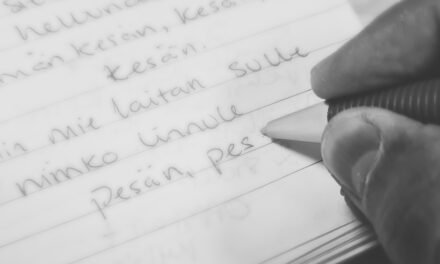 helluna
män kesän, kesä
kesän.
in mie laitan sulle
nimko linnule
pesän, pes